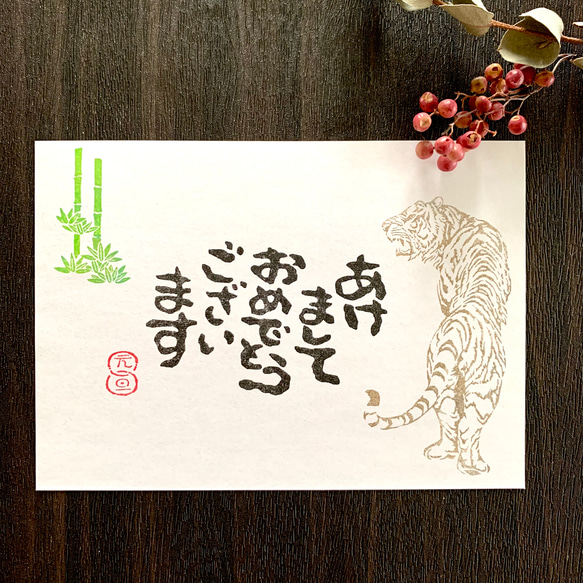 あけ
まして
おめでとう
ござい
ます
元旦